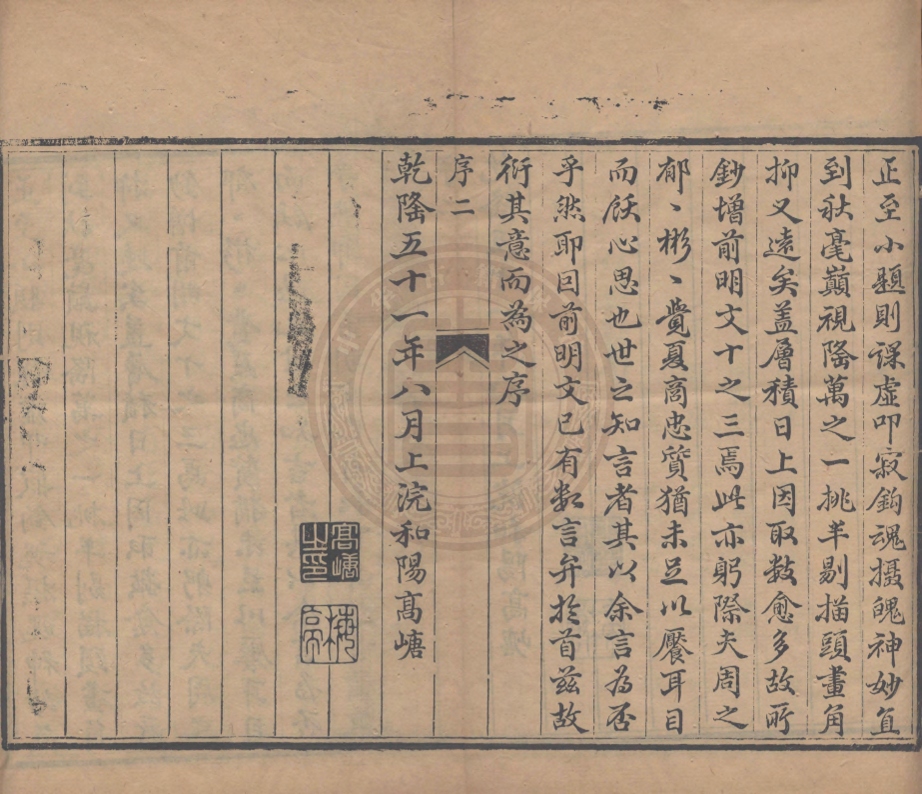 正至小題則課虛叩寂鈎魂攝魄神妙直
到秋毫巔視隆萬之一挑半剔描頭畫角
抑又遠矣盖層積日上因取数愈多故所
鈔增前明文十之三焉此亦躬際夫周之
郁丶彬丶覺夏商忠質猶未足以饜耳目
而厭心思也世之知言者其以余言為否
乎然耶囙前明文已有数言弁於首兹故
衍其意而為之序
序二
乾隆五十一年八月上浣和陽高嵣
高嵣之印
梅亭